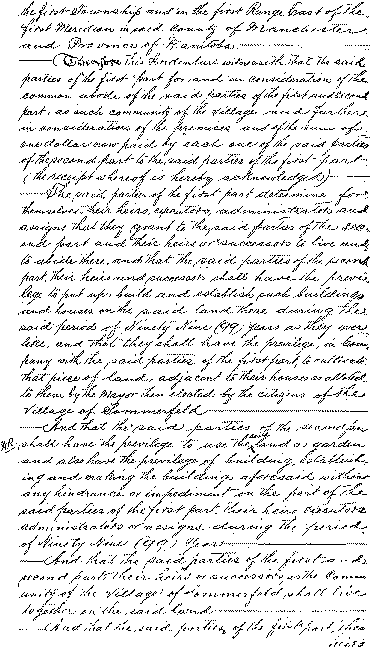 the first Township and in the first Range East of the
first Meridian in said County of Manchester
and Province of Manitoba.
Therefore This Indenture witnesseth that the said
parties of the first part for and in consideration of the
common abode of the said parties of the first and second
part, as such community of the Village and further
in consideration of the premises and of the sum of
one dollar now paid by each one of the said parties
of the second part to the said parties of the first part
(the receipt whereof is hereby acknowledged)
The said parties of the first part determine for
themselves, their heirs, executors, administrators and
assigns that they grant to the said parties of the sec-
ond part and their heirs or successors to live and
to abide there, and that the said parties of the second
part, their heirs and successors shall have the previ-
lege to put up, build and establish such buildings
and houses on the said land there during the
said period of Ninety Nine (99) years as they were
like, and that they shall have the previlege, in Com-
pany with the said parties of the first part, to cultivate
that piece of land, adjacent to their houses as allotted
to them by the Mayor then elected by the citizens of the
Village of Sommerfeld
And that the said parties of the second part
shall have the previlege to use the said land as garden
and also have the previlege of building, establish-
ing and making the buildings aforesaid without
any hindrance or impediment on the part of the
said parties of the first part, their heirs executors
administrators or assigns during the period
of Ninety Nine (99) Years
And that the said parties of the first and
second part, their heirs or successors, as the Comm-
unity of the Village of Sommerfeld shall live
together on the said land
And that the said parties of the first part, their
heirs